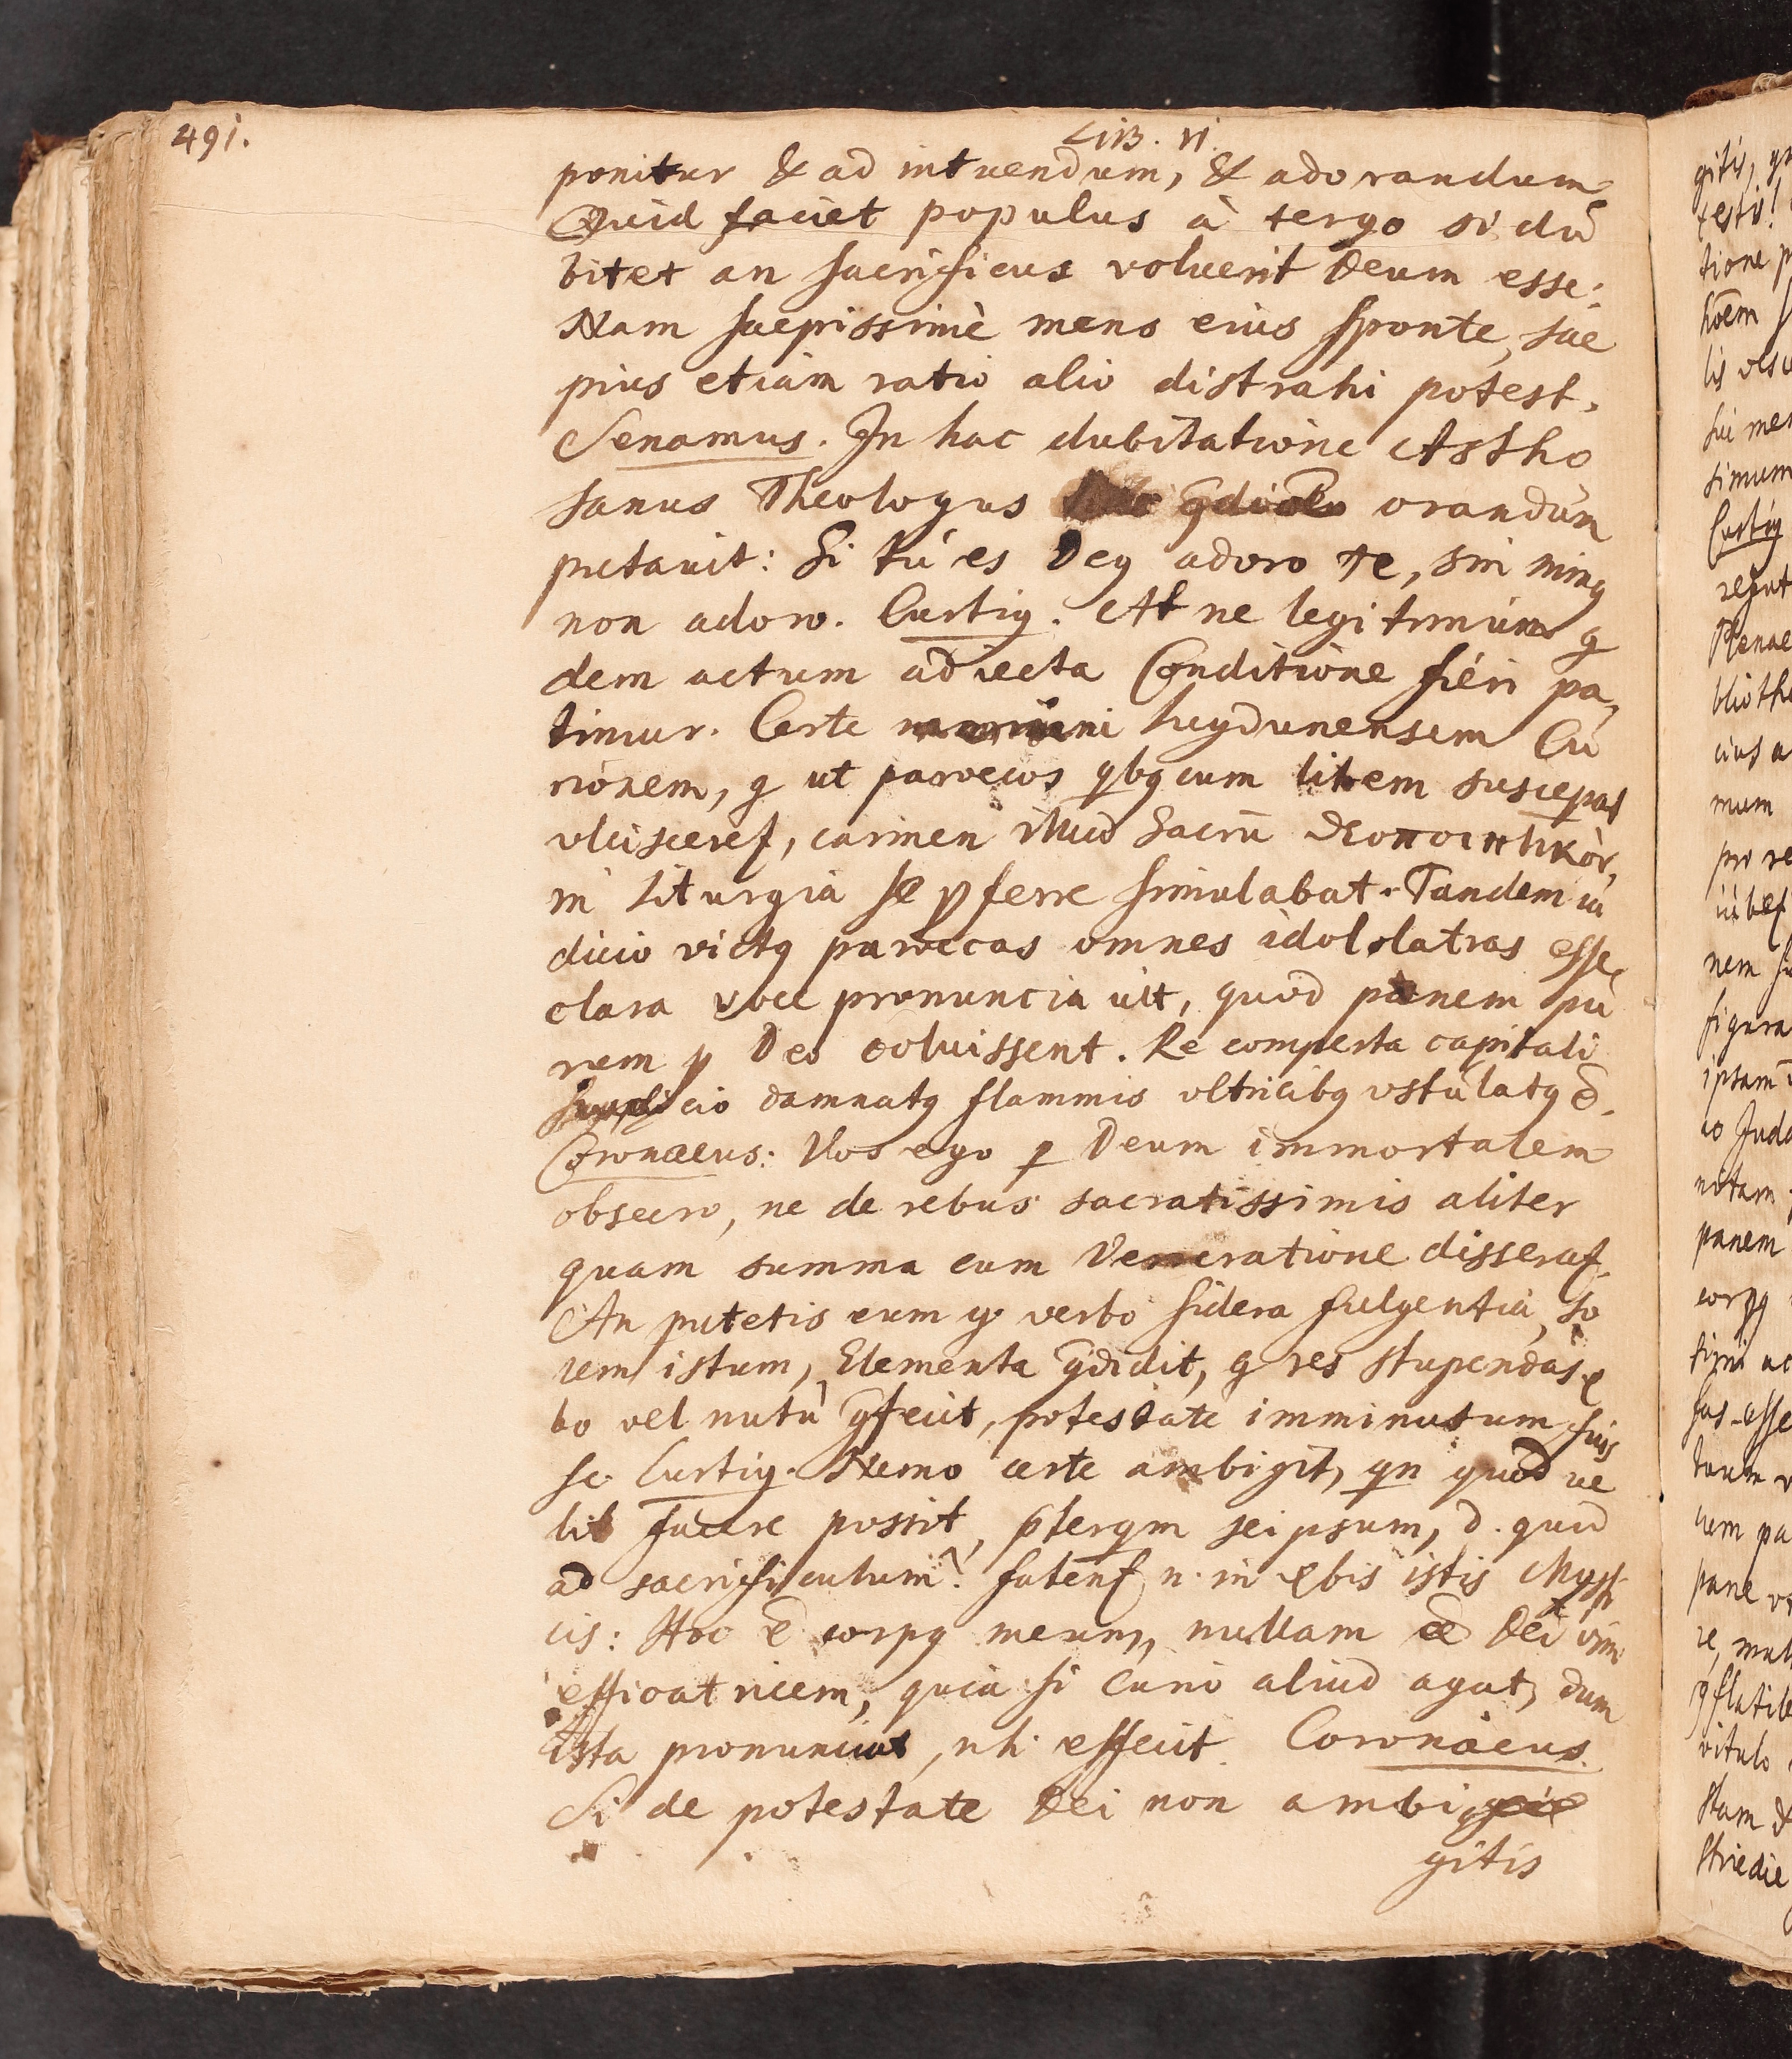 491.
LiB. VI.
ponitur & ad intuendum, & adorandum.
Quid faciet populus à tergo si du
bitet an sacrificus voluerit Deum esse:
Nam saepissimè mens eius sponte, sae
pius etiam ratio alio distrahi potest.
Senamus. In hac dubitatione Astho
sanus Theologus orandum
putavit: Si tu es Deus adoro te, sin minus
non adoro. Curtius. At ne legitimum q
dem actum adiecta Conditione fieri pa,
timur. Certe memini lugdunensem Cu
rionem, q ut paroecos qbus cum litem susceperat
ulcisceret, carmen illud sacrū
in liturgia se pferre simulabat. Tandem iu
dicio victus paroecos omnes idololatras esse
clara voce pronuncia uit, quod panem pu
rem p Deo coluissent. Re comperta capitali
supplicio damnatus flammis ultricibus ustulatus ē.
Coronaeus: Vos ego p Deum immortalem
obsecro, ne de rebus sacratissimis aliter
quam summa cum Veneratione disserat.
An putetis eum q verbo sidera fulgentia, so
lem istum, Elementa condidit, q res stupendas
bo vel nutu confecit, potestate imminutum fuis
se. Curtius. Nemo certe ambigit, qn quod ve
lit facere possit, pterqm seipsum, d. quid
ad sacrificulum? fatent n. in vbis istis Mysti
cis: Hoc ē corpus meum, nullam ēē Dei vim
efficatricem, quia si Curio aliud agat, dum
ista pronunciat, nhi effecit. Coronaeus.
Si de potestate Dei non ambi
gitis